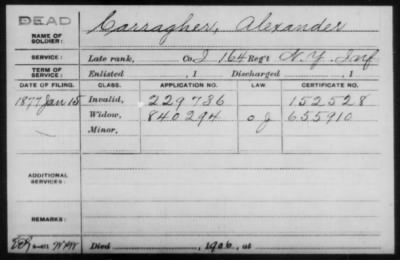 DEAD
NAME OF SOLDIER: Carragher, Alexander
SERVICE: Late rank, Co. I 164 Reg't N.Y. Inf
TERM OF SERVICE: Enlisted , 1 Discharged , 1
DATE OF FILING. CLASS. APPLICATION NO. LAW. CERTIFICATE NO.
1877 Jan 15 Invalid, 229736 152528
Widow, 840294 o g 655910
Minor,
ADDITIONAL SERVICES:
REMARKS:
Died , 1906, at